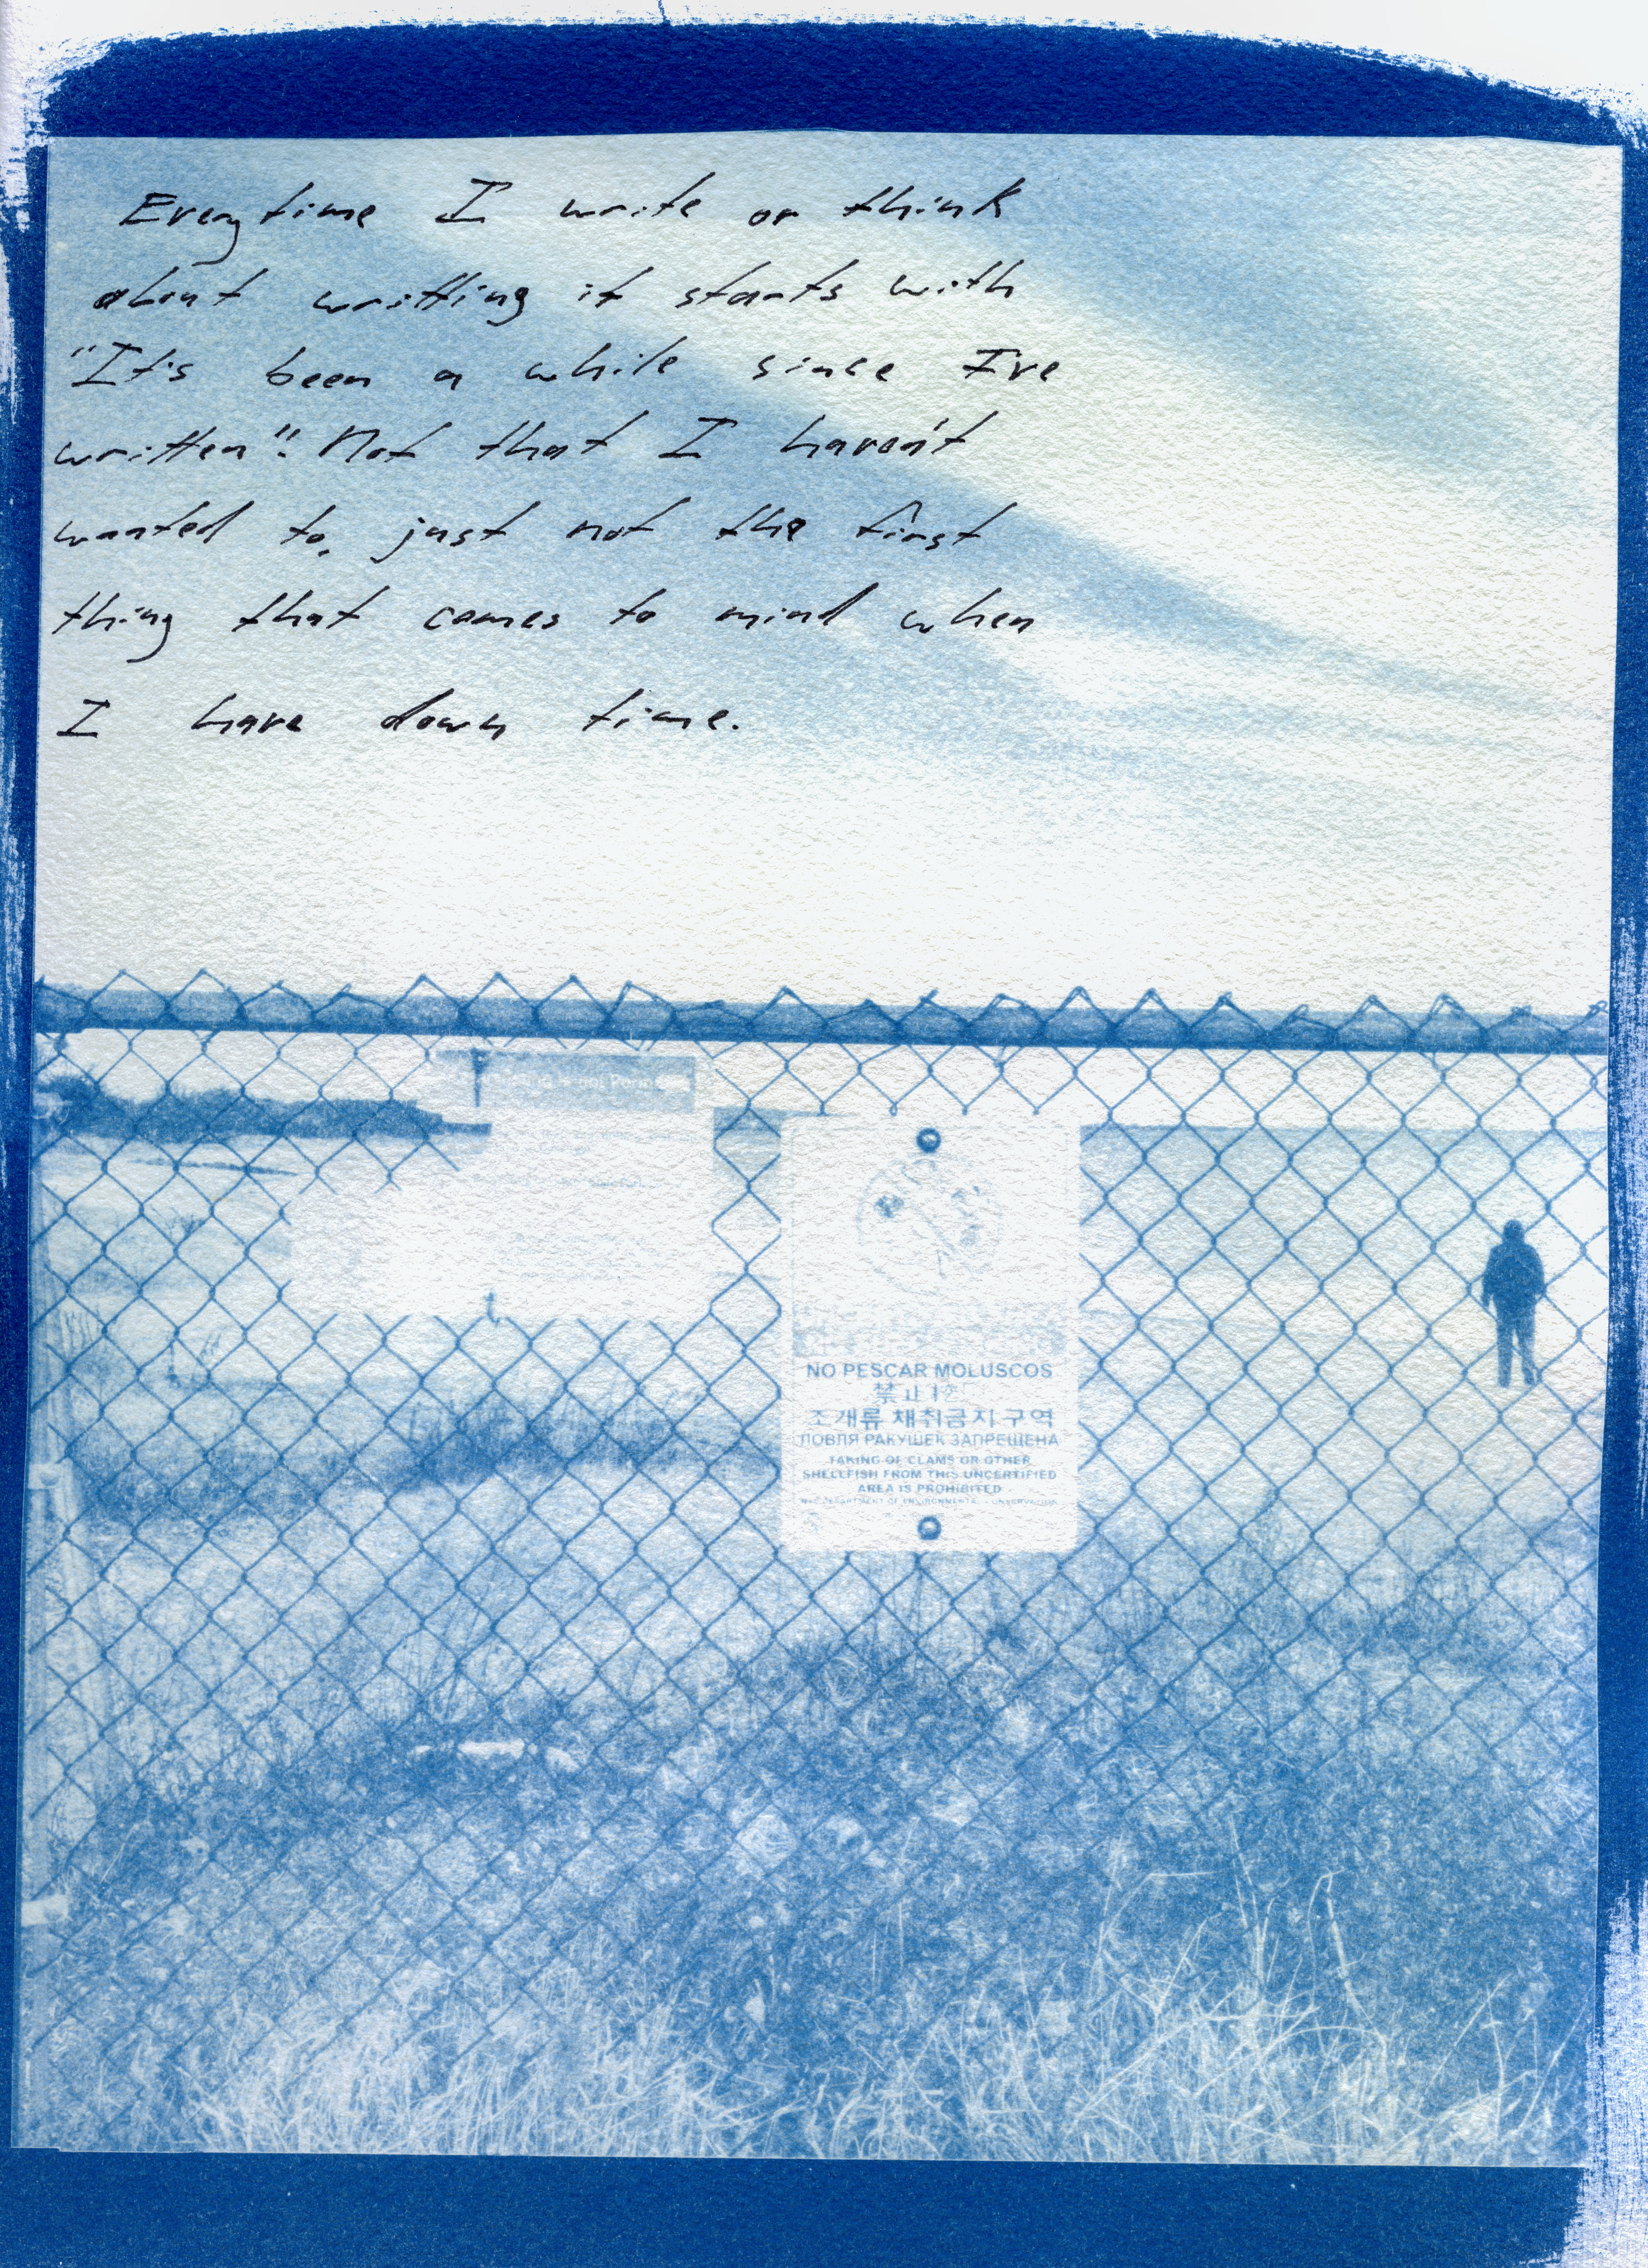 Everytime I write or think
about writting it starts with
"It's been a while since I've
written". Not that I haven't
wanted to, just not the first
thing that comes to mind when
I have down time.
NO PESCAR MOLUSCOS
禁止
조개류 채취금지 구역
ЛОВЛЯ РАКУШЕК ЗАПРЕЩЕНА
TAKING OF CLAMS OR OTHER
SHELLFISH FROM THIS UNCERTIFIED
AREA IS PROHIBITED